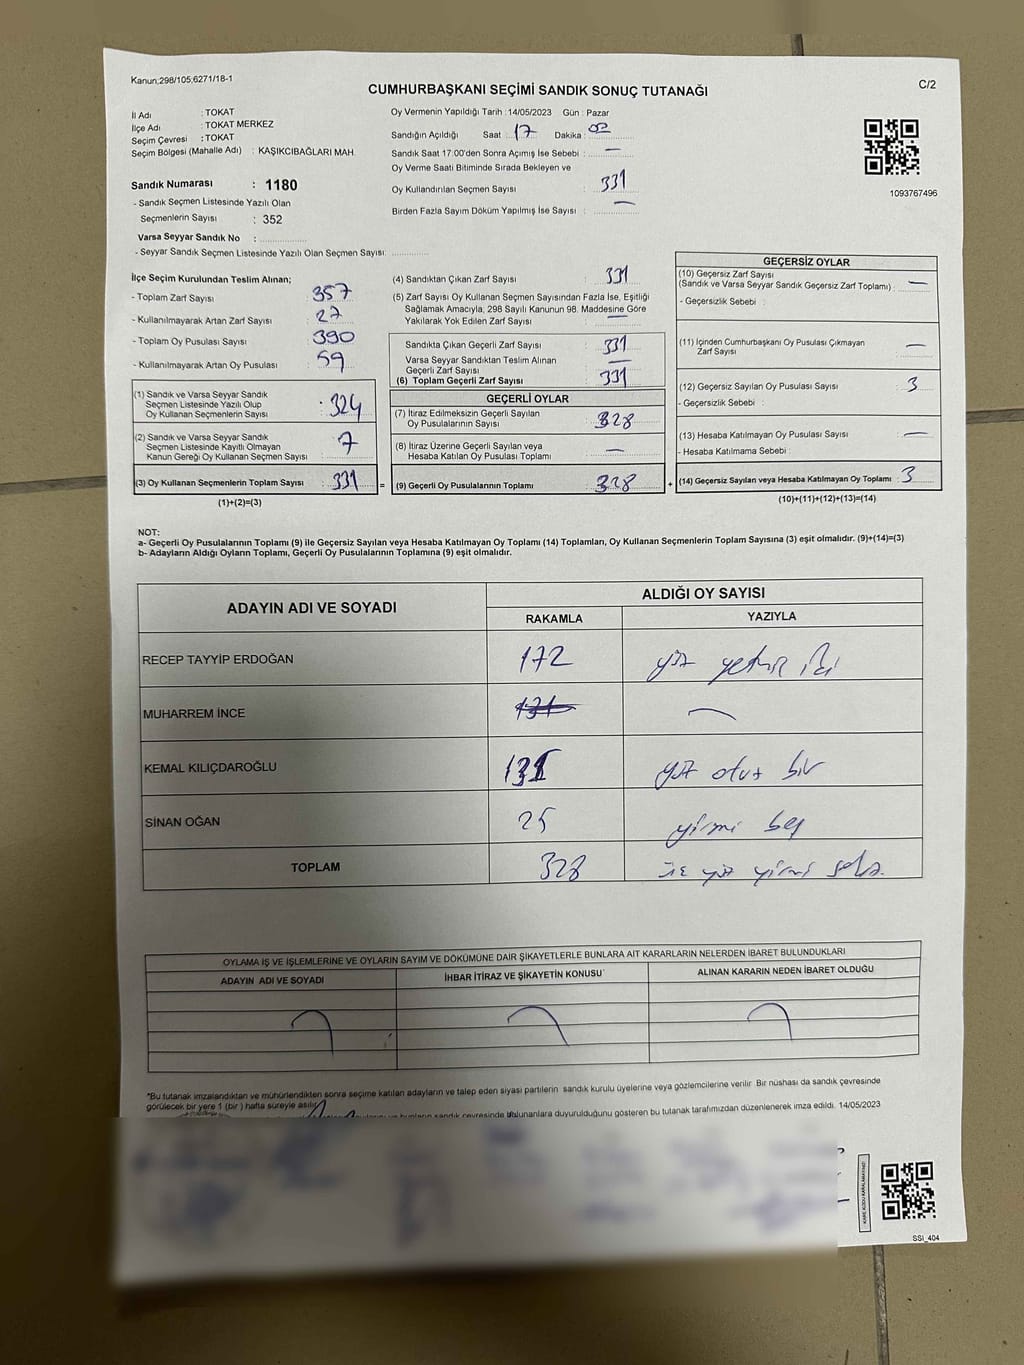 Kanun;298/105;6271/18-1
C/2
CUMHURBAŞKANI SEÇİMİ SANDIK SONUÇ TUTANAĞI
İl Adı : TOKAT
İlçe Adı : TOKAT MERKEZ
Seçim Çevresi : TOKAT
Seçim Bölgesi (Mahalle Adı) : KAŞIKCIBAĞLARI MAH.
Sandık Numarası : 1180
- Sandık Seçmen Listesinde Yazılı Olan
Seçmenlerin Sayısı : 352
Varsa Seyyar Sandık No :
- Seyyar Sandık Seçmen Listesinde Yazılı Olan Seçmen Sayısı:
Oy Vermenin Yapıldığı Tarih :14/05/2023 Gün : Pazar
Sandığın Açıldığı Saat : 17 Dakika : 02
Sandık Saat 17:00'den Sonra Açımış İse Sebebi : —
Oy Verme Saati Bitiminde Sırada Bekleyen ve
Oy Kullandırılan Seçmen Sayısı : 331
Birden Fazla Sayım Döküm Yapılmış İse Sayısı : —
1093767496
İlçe Seçim Kurulundan Teslim Alınan;
- Toplam Zarf Sayısı : 357
- Kullanılmayarak Artan Zarf Sayısı : 27
- Toplam Oy Pusulası Sayısı : 390
- Kullanılmayarak Artan Oy Pusulası : 59
(1) Sandık ve Varsa Seyyar Sandık
Seçmen Listesinde Yazılı Olup
Oy Kullanan Seçmenlerin Sayısı : 324
(2) Sandık ve Varsa Seyyar Sandık
Seçmen Listesinde Kayıtlı Olmayan
Kanun Gereği Oy Kullanan Seçmen Sayısı : 7
(3) Oy Kullanan Seçmenlerin Toplam Sayısı : 331 =
(1)+(2)=(3)
(4) Sandıktan Çıkan Zarf Sayısı : 331
(5) Zarf Sayısı Oy Kullanan Seçmen Sayısından Fazla İse, Eşitliği
Sağlamak Amacıyla; 298 Sayılı Kanunun 98. Maddesine Göre
Yakılarak Yok Edilen Zarf Sayısı : —
Sandıkta Çıkan Geçerli Zarf Sayısı : 331
Varsa Seyyar Sandıktan Teslim Alınan
Geçerli Zarf Sayısı : —
(6) Toplam Geçerli Zarf Sayısı : 331
GEÇERLİ OYLAR
(7) İtiraz Edilmeksizin Geçerli Sayılan
Oy Pusulalarının Sayısı : 328
(8) İtiraz Üzerine Geçerli Sayılan veya
Hesaba Katılan Oy Pusulası Toplamı : —
(9) Geçerli Oy Pusulalarının Toplamı : 328 +
GEÇERSİZ OYLAR
(10) Geçersiz Zarf Sayısı
(Sandık ve Varsa Seyyar Sandık Geçersiz Zarf Toplamı) : —
- Geçersizlik Sebebi :
(11) İçinden Cumhurbaşkanı Oy Pusulası Çıkmayan
Zarf Sayısı : —
(12) Geçersiz Sayılan Oy Pusulası Sayısı : 3
- Geçersizlik Sebebi :
(13) Hesaba Katılmayan Oy Pusulası Sayısı : —
- Hesaba Katılmama Sebebi :
(14) Geçersiz Sayılan veya Hesaba Katılmayan Oy Toplamı : 3
(10)+(11)+(12)+(13)=(14)
NOT:
a- Geçerli Oy Pusulalarının Toplamı (9) ile Geçersiz Sayılan veya Hesaba Katılmayan Oy Toplamı (14) Toplamları, Oy Kullanan Seçmenlerin Toplam Sayısına (3) eşit olmalıdır. (9)+(14)=(3)
b- Adayların Aldığı Oyların Toplamı, Geçerli Oy Pusulalarının Toplamına (9) eşit olmalıdır.
ADAYIN ADI VE SOYADI ALDIĞI OY SAYISI
RAKAMLA YAZIYLA
RECEP TAYYİP ERDOĞAN 172 yüz yetmiş iki
MUHARREM İNCE 131 —
KEMAL KILIÇDAROĞLU 131 yüz otuz bir
SİNAN OĞAN 25 yirmi beş
TOPLAM 328 üç yüz yirmi sekiz
OYLAMA İŞ VE İŞLEMLERİNE VE OYLARIN SAYIM VE DÖKÜMÜNE DAİR ŞİKAYETLERLE BUNLARA AİT KARARLARIN NELERDEN İBARET BULUNDUKLARI
ADAYIN ADI VE SOYADI İHBAR İTİRAZ VE ŞİKAYETİN KONUSU ALINAN KARARIN NEDEN İBARET OLDUĞU
*Bu tutanak imzalandıktan ve mühürlendikten sonra seçime katılan adayların ve talep eden siyasi partilerin sandık kurulu üyelerine veya gözlemcilerine verilir. Bir nüshası da sandık çevresinde
görülecek bir yere 1 (bir) hafta süreyle asılır.
bunların sandık çevresinde bulunanlara duyurulduğunu gösteren bu tutanak tarafımızdan düzenlenerek imza edildi. 14/05/2023
KARE KODU KARALAMAYINIZ!
SSI_404